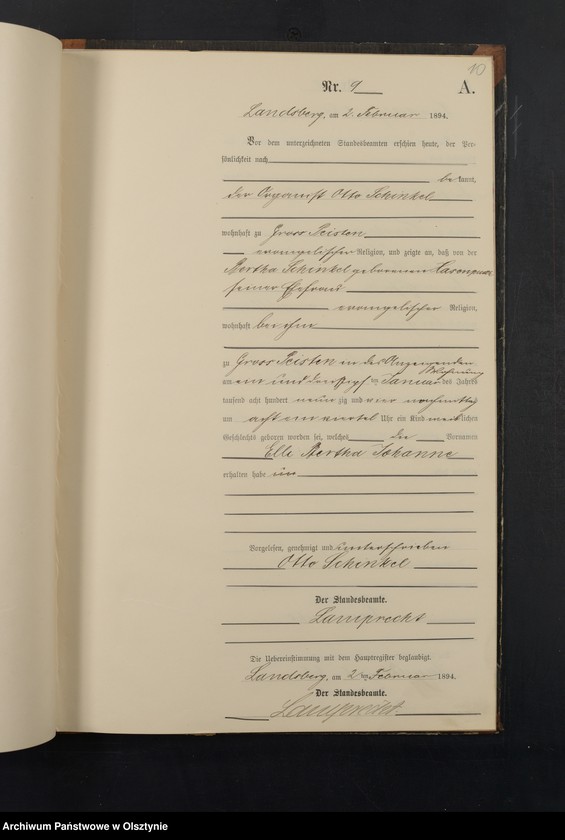 10
Nr. 9 A.
Landsberg, am 2. Februar 1894.
Vor dem unterzeichneten Standesbeamten erschien heute, der Per-
sönlichkeit nach
be kannt,
der Organist Otto Schinkel
wohnhaft zu Gross Peisten
evangelischer Religion, und zeigte an, daß von der
Martha Schinkel geborenen
seiner Ehefrau
evangelischer Religion,
wohnhaft bei ihm
zu Gross Peisten in des Anzeigenden
Wohnung
am ein und dreißigsten Januar des Jahres
tausend acht hundert neun zig und vier nachmittags
um acht ein viertel Uhr ein Kind weiblichen
Geschlechts geboren worden sei, welches die Vornamen
Martha Johanne
erhalten habe
Vorgelesen, genehmigt und unterschrieben
Otto Schinkel
Der Standesbeamte.
Lamprecht
Die Uebereinstimmung mit dem Hauptregister beglaubigt.
Landsberg, am 2 Februar 1894.
Der Standesbeamte.
Lamprecht
Archiwum Państwowe w Olsztynie